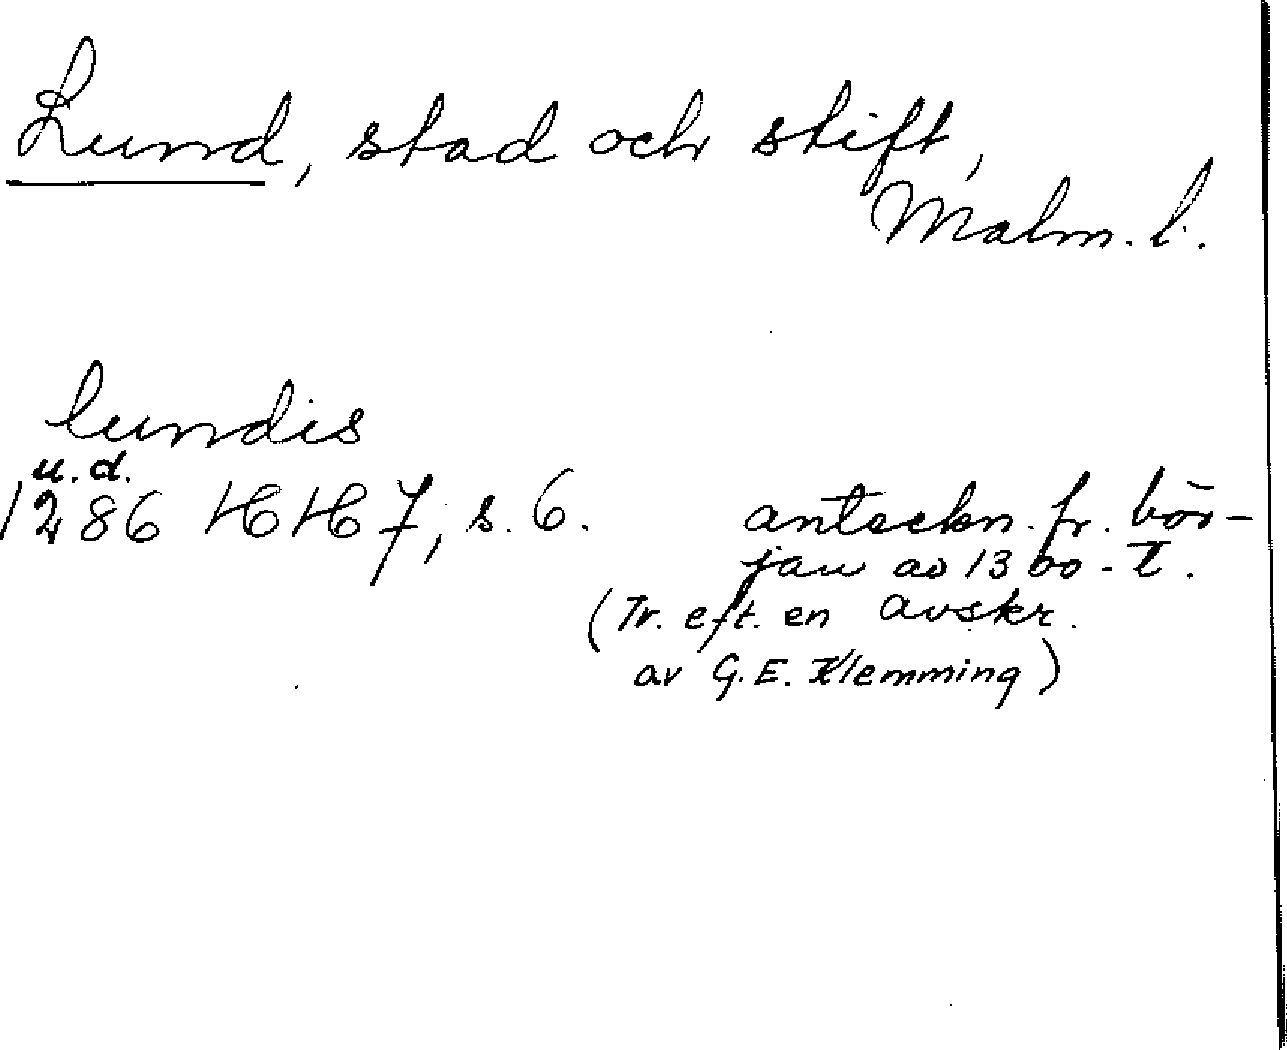 Lund, stad och stift,
Malm. l.
lundis
u. d.
1286 HH 7, s. 6. anteckn. fr. bör-
jan av 1300-t.
(Tr. eft. en avskr.
av G. E. Klemming)